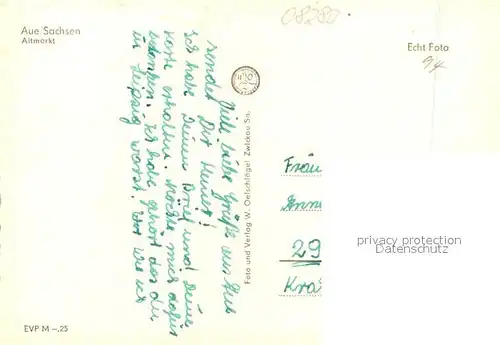 Aue/Sachsen
Altmarkt
08280
Echt Foto
9/4
Viel liebe Grüße aus Aue
sendet Dir Heiner!
Ich habe Deinen Brief und Deine
Karte erhalten. Möchte mich dafür
bedanken. Ich habe gehört das du
in Leipzig warst.
Foto und Verlag W. Oelschlägel Zwickau Sa.
Frau
29
privacy protection
Datenschutz
EVP M -,25